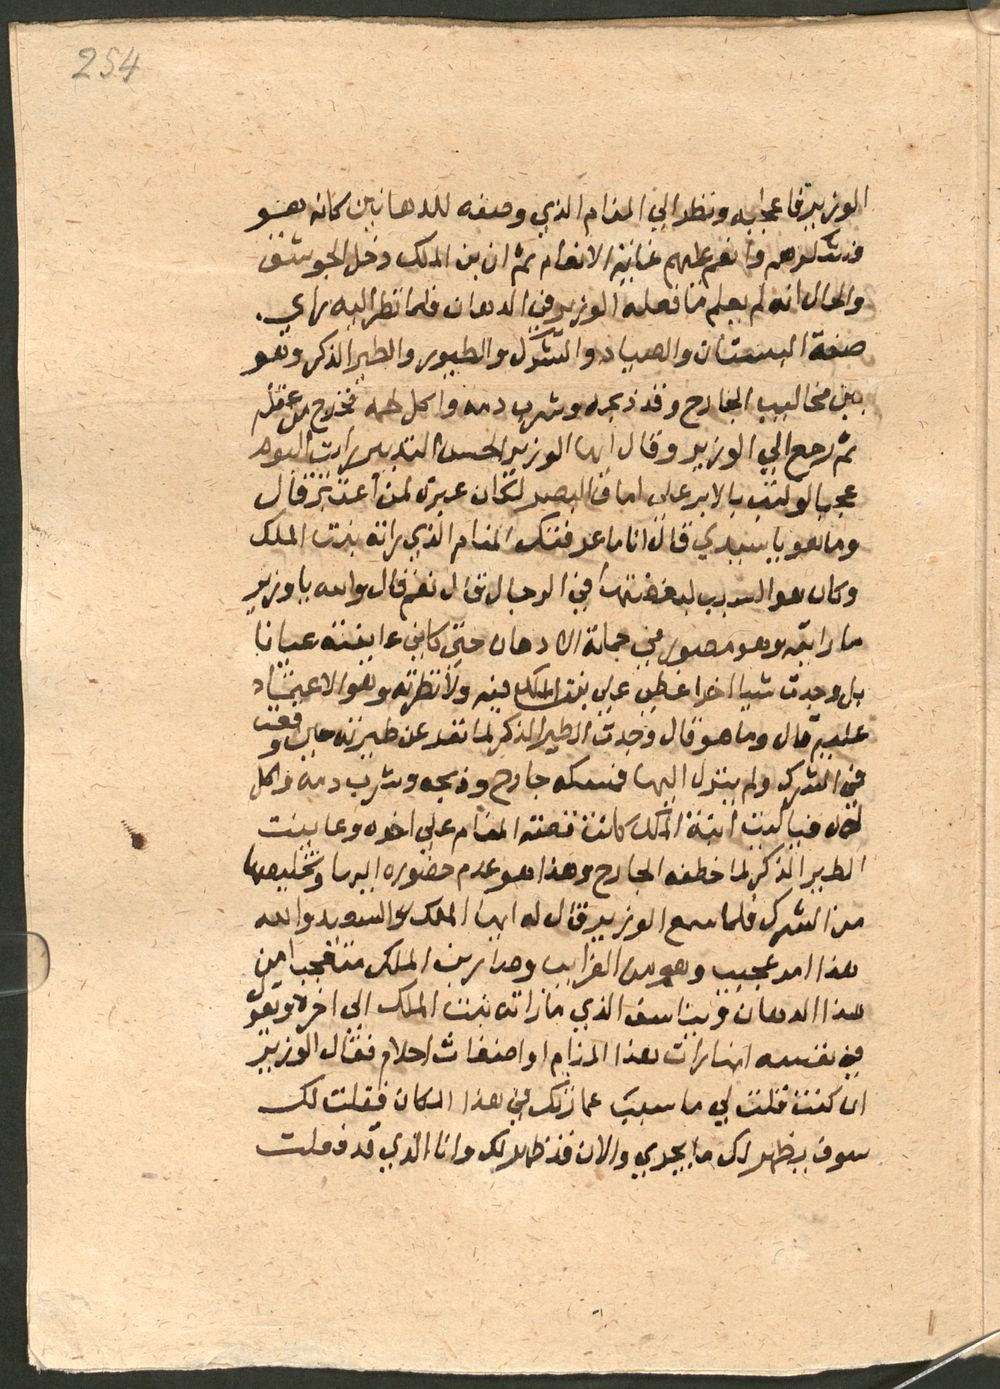 254
الوزير فاعجبه ونظر الي المنام الذي وصفه للدهانين كانه هو
فشكرهم وانعم عليهم غاية الانعام ثم ان بن الملك دخل الجوشق
والحال انه لم يعلم ما فعله الوزير في الدهان فلما نظر اليه راي
صفة البستان والصياد والشرك والطيور والطير الذكر وهو
بين مخاليب الجارح وقد ذبحه وشرب دمه واكل لحمه فخرج من عقله
ثم رجع الي الوزير وقال ايها الوزير الحسن التدبير رايت اليوم
عجبا لو كتب بالابر علي اماق البصر لكان عبرة لمن اعتبر قال
وما هو يا سيدي قال انا ما عرفتك المنام الذي راته بنت الملك
وكان هو السبب لبغضتها في الرجال قال نعم قال والله يا وزير
ما رايته وهو مصور في جملة الادهان حتي كاني عاينته عيانا
بل وجدت شيا اخر غطي علي بنت الملك فيه ولا نظرته وهو الاعتماد
عليه قال وما هو قال وجدت الطير الذكر لما نفد عن طيرته حين وقعت
في الشرك ولم ينزل اليها فمسكه جارح وذبحه وشرب دمه واكل
لحمه فيا ليت ابنة الملك كانت قصته المنام علي اخره وعاينت
الطير الذكر لما خطفه الجارح وهذا هو عدم حضوره اليها وتخليصها
من الشرك فلما سمع الوزير قال له ايها الملك السعيد والله
هذا امر عجيب وهو من الغرايب وصار بن الملك متعجبا من
هذا الدهان ويتاسف الذي ما راته بنت الملك الي اخره ويقول
في نفسه انها رات هذا المنام او اضغاث احلام فقال الوزير
ان كنت قلت لي ما سبب عمارتك في هذا المكان فقلت لك
سوف يظهر لك ما يجري والان قد ظهر لك وانا الذي قد فعلت